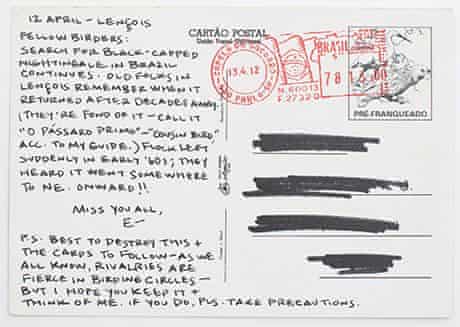 12 APRIL – LENÇOIS
FELLOW BIRDERS:
SEARCH FOR BLACK-CAPPED
NIGHTINGALE IN BRAZIL
CONTINUES. OLD FOLKS IN
LENÇOIS REMEMBER WHEN IT
RETURNED AFTER DECADES AWAY.
(THEY'RE FOND OF IT – CALL IT
"O PÁSSARO PRIMO" – "COUSIN BIRD"
ACC. TO MY GUIDE.) FLOCK LEFT
SUDDENLY IN EARLY '60s; THEY
HEARD IT WENT SOMEWHERE
TO NE. ONWARD!!
MISS YOU ALL,
E–
P.S. BEST TO DESTROY THIS +
THE CARDS TO FOLLOW – AS WE
ALL KNOW, RIVALRIES ARE
FIERCE IN BIRDING CIRCLES –
BUT I HOPE YOU KEEP IT +
THINK OF ME. IF YOU DO, PLS. TAKE PRECAUTIONS.
CARTÃO POSTAL
13.4.12
SÃO PAULO
BRASIL
PRÉ-FRANQUEADO